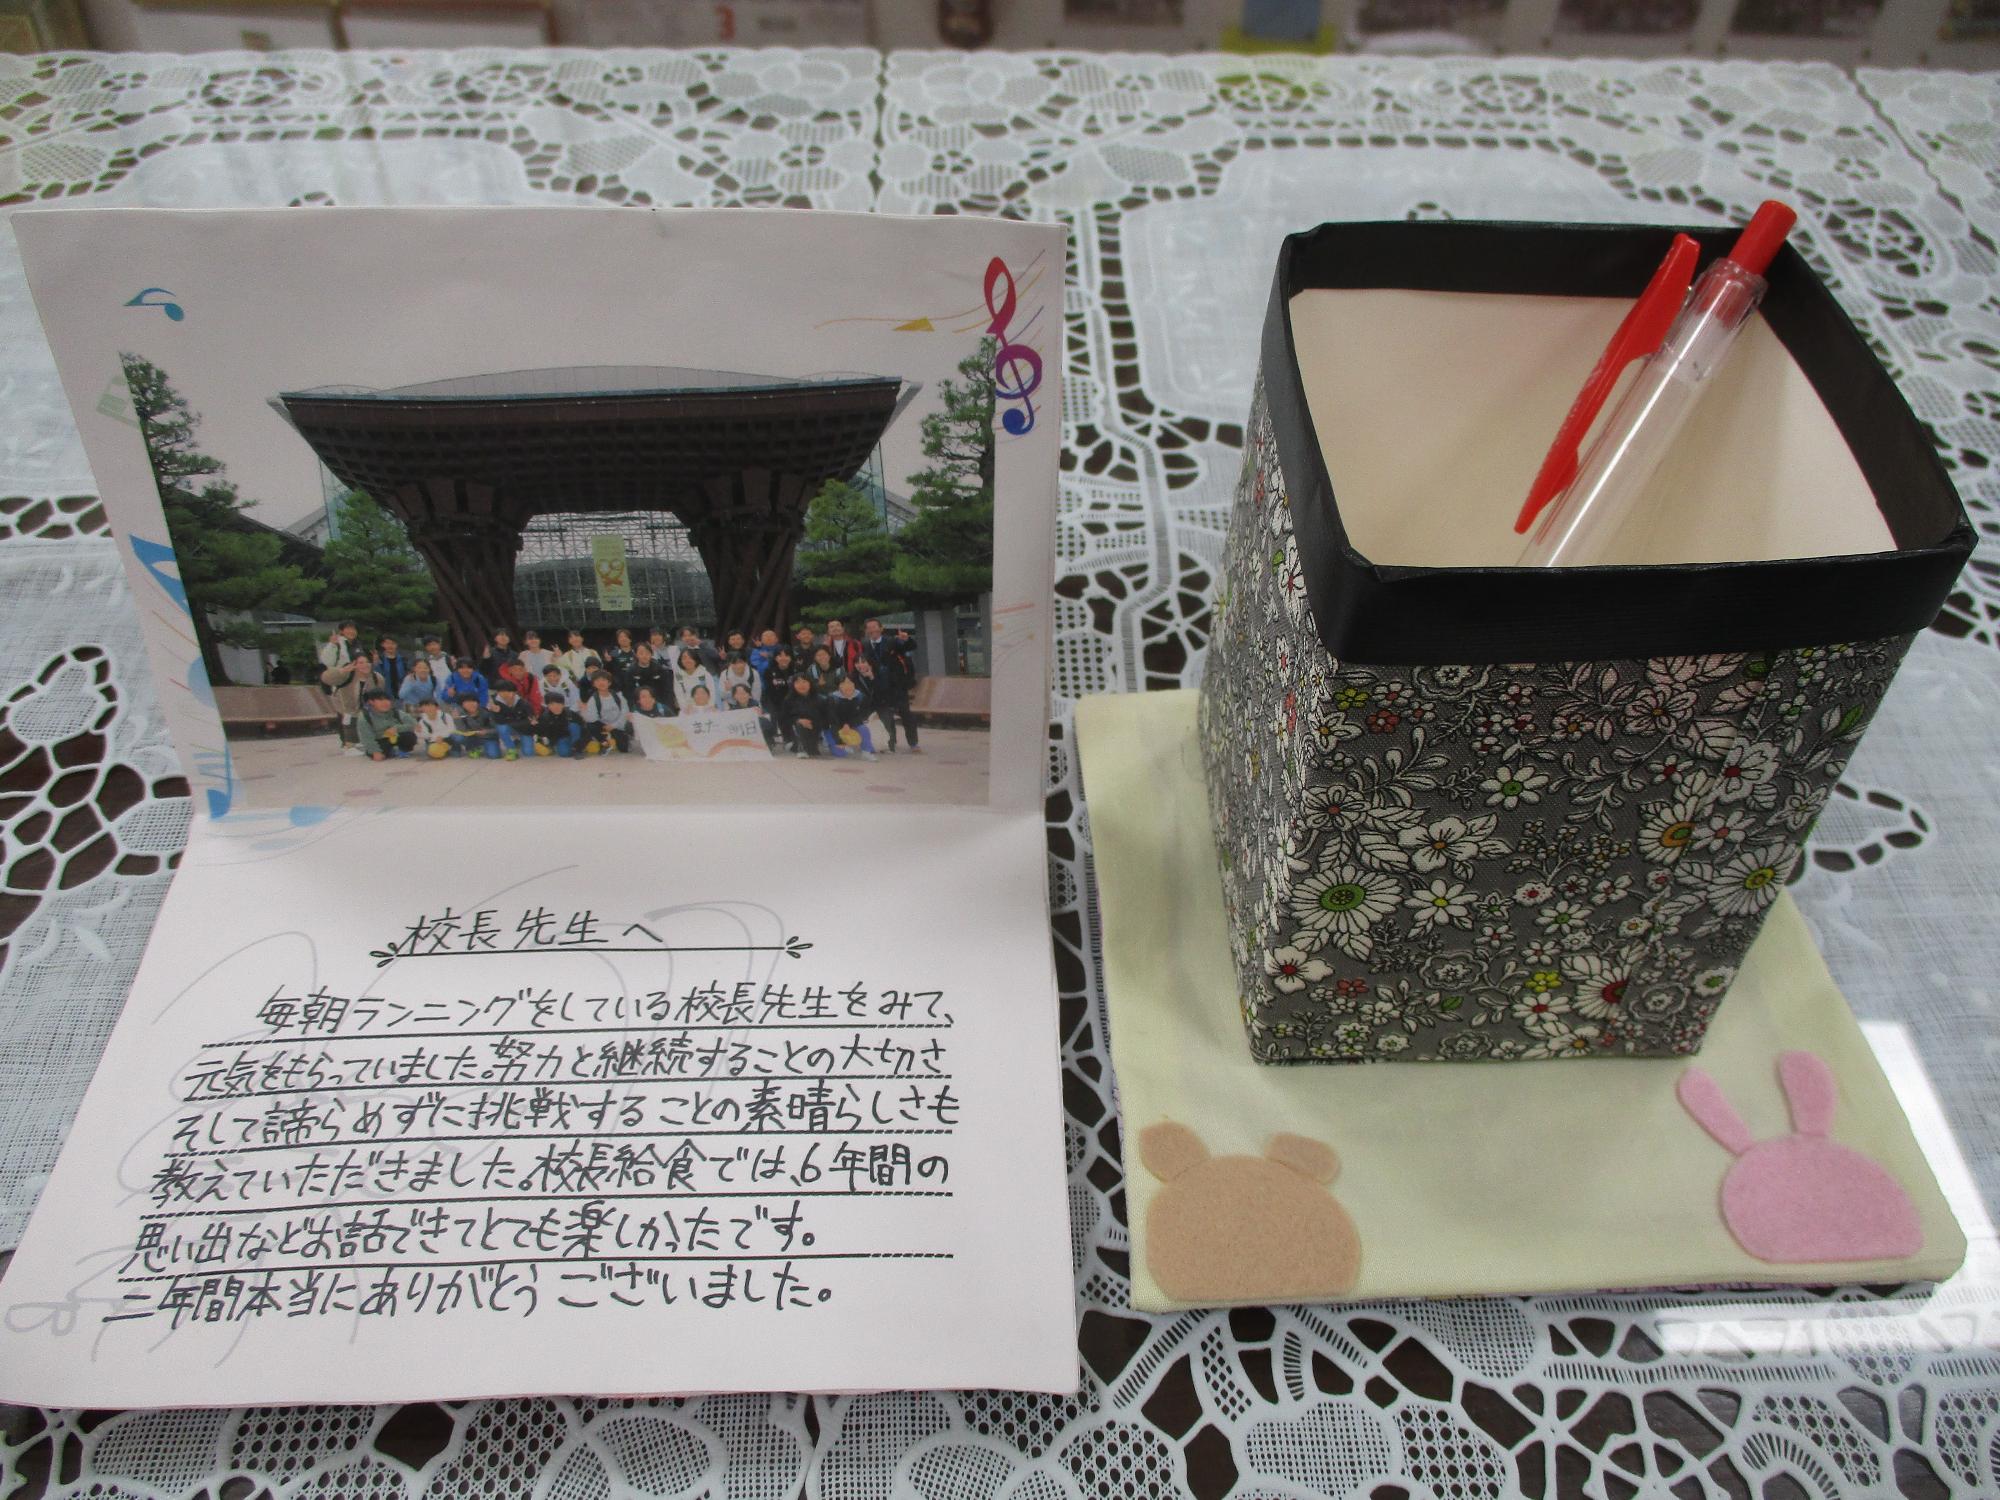 3
また明日
校長先生へ
毎朝ランニングをしている校長先生をみて、
元気をもらっていました。努力と継続することの大切さ
そして諦らめずに挑戦することの素晴らしさも
教えていただきました。校長給食では、6年間の
思い出などお話できてとても楽しかったです。
三年間本当にありがとうございました。